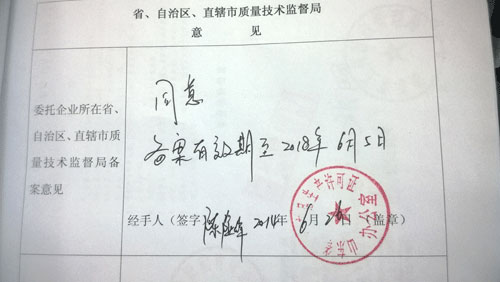 省、自治区、直辖市质量技术监督局
意 见
委托企业所在省、
自治区、直辖市质
量技术监督局备
案意见
同意
备案有效期至2018年6月5日
经手人（签字）
2014年6月2 日（盖章）
生产许可证
办公室
山东省